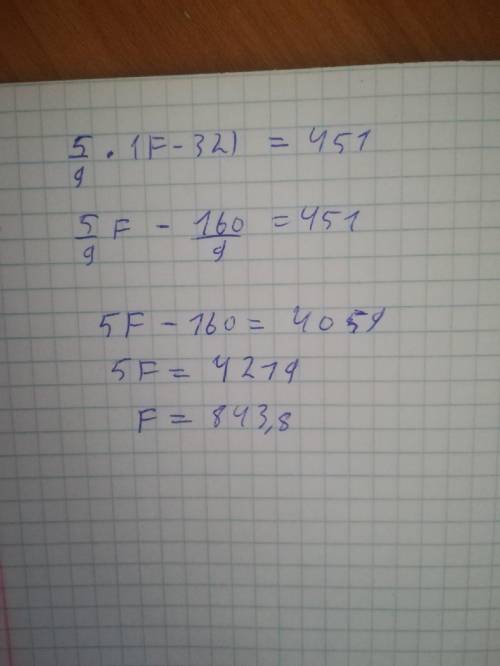 5/9 · (F - 32) = 451
5/9 F - 160/9 = 451
5F - 160 = 4059
5F = 4219
F = 843,8